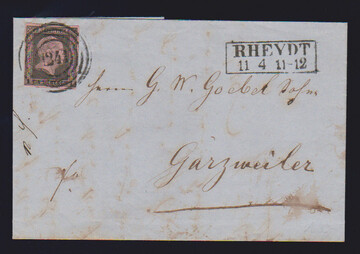 RHEYDT
11 4 11-12
1241
Herrn G. W. Goebel Sohn
Garzweiler